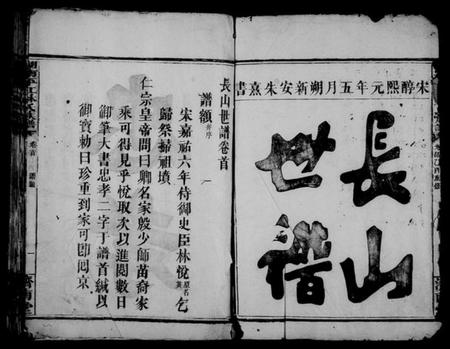 宋醇熙元年五月朔新安朱熹書
長山
世譜
長山世譜卷首
譜額 并序
宋嘉祐六年侍御史臣林悅 原名英 乞
歸祭掃祖墳
仁宗皇帝問曰卿名家殷少師苗裔家
乘可得見乎悅取次以進閱數日
御筆大書忠孝二字于譜首緘以
御寶勅曰珍重到家可即囘京